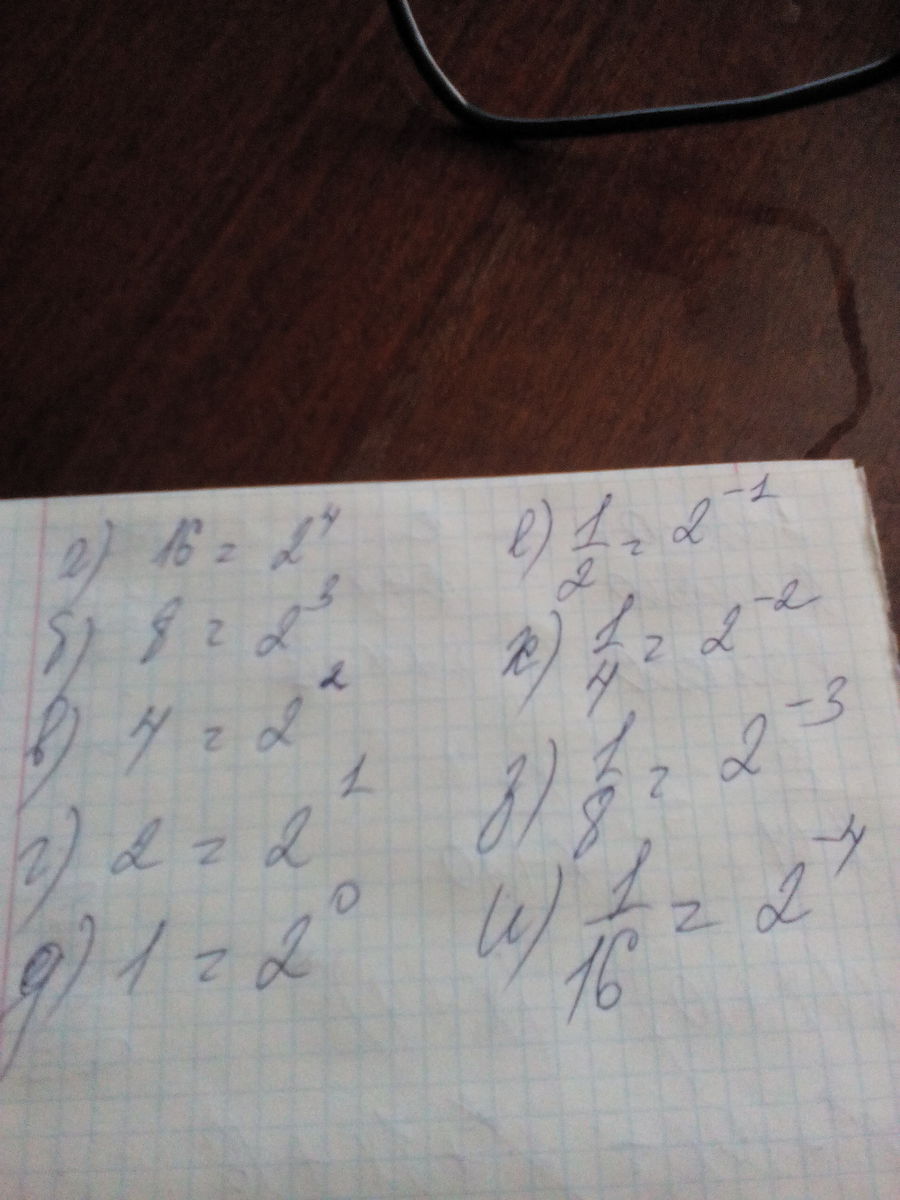 а) 16 = 2⁴
б) 8 = 2³
в) 4 = 2²
г) 2 = 2¹
д) 1 = 2⁰
е) 1/2 = 2⁻¹
ж) 1/4 = 2⁻²
з) 1/8 = 2⁻³
и) 1/16 = 2⁻⁴